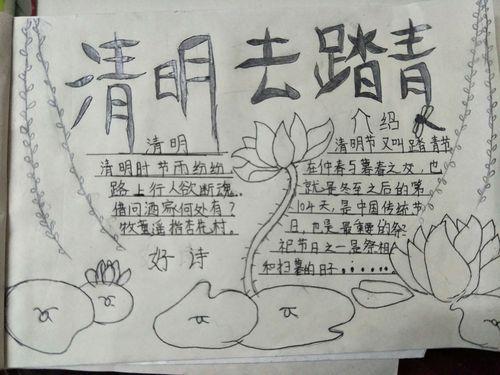 清明去踏青
清明
清明时节雨纷纷
路上行人欲断魂。
借问酒家何处有？
牧童遥指杏花村。
好诗
介绍
清明节又叫踏青节
在仲春与暮春之交，也
就是冬至之后的第
104天，是中国传统节
日，也是最重要的祭
祀节日之一是祭祖
和扫墓的日子……